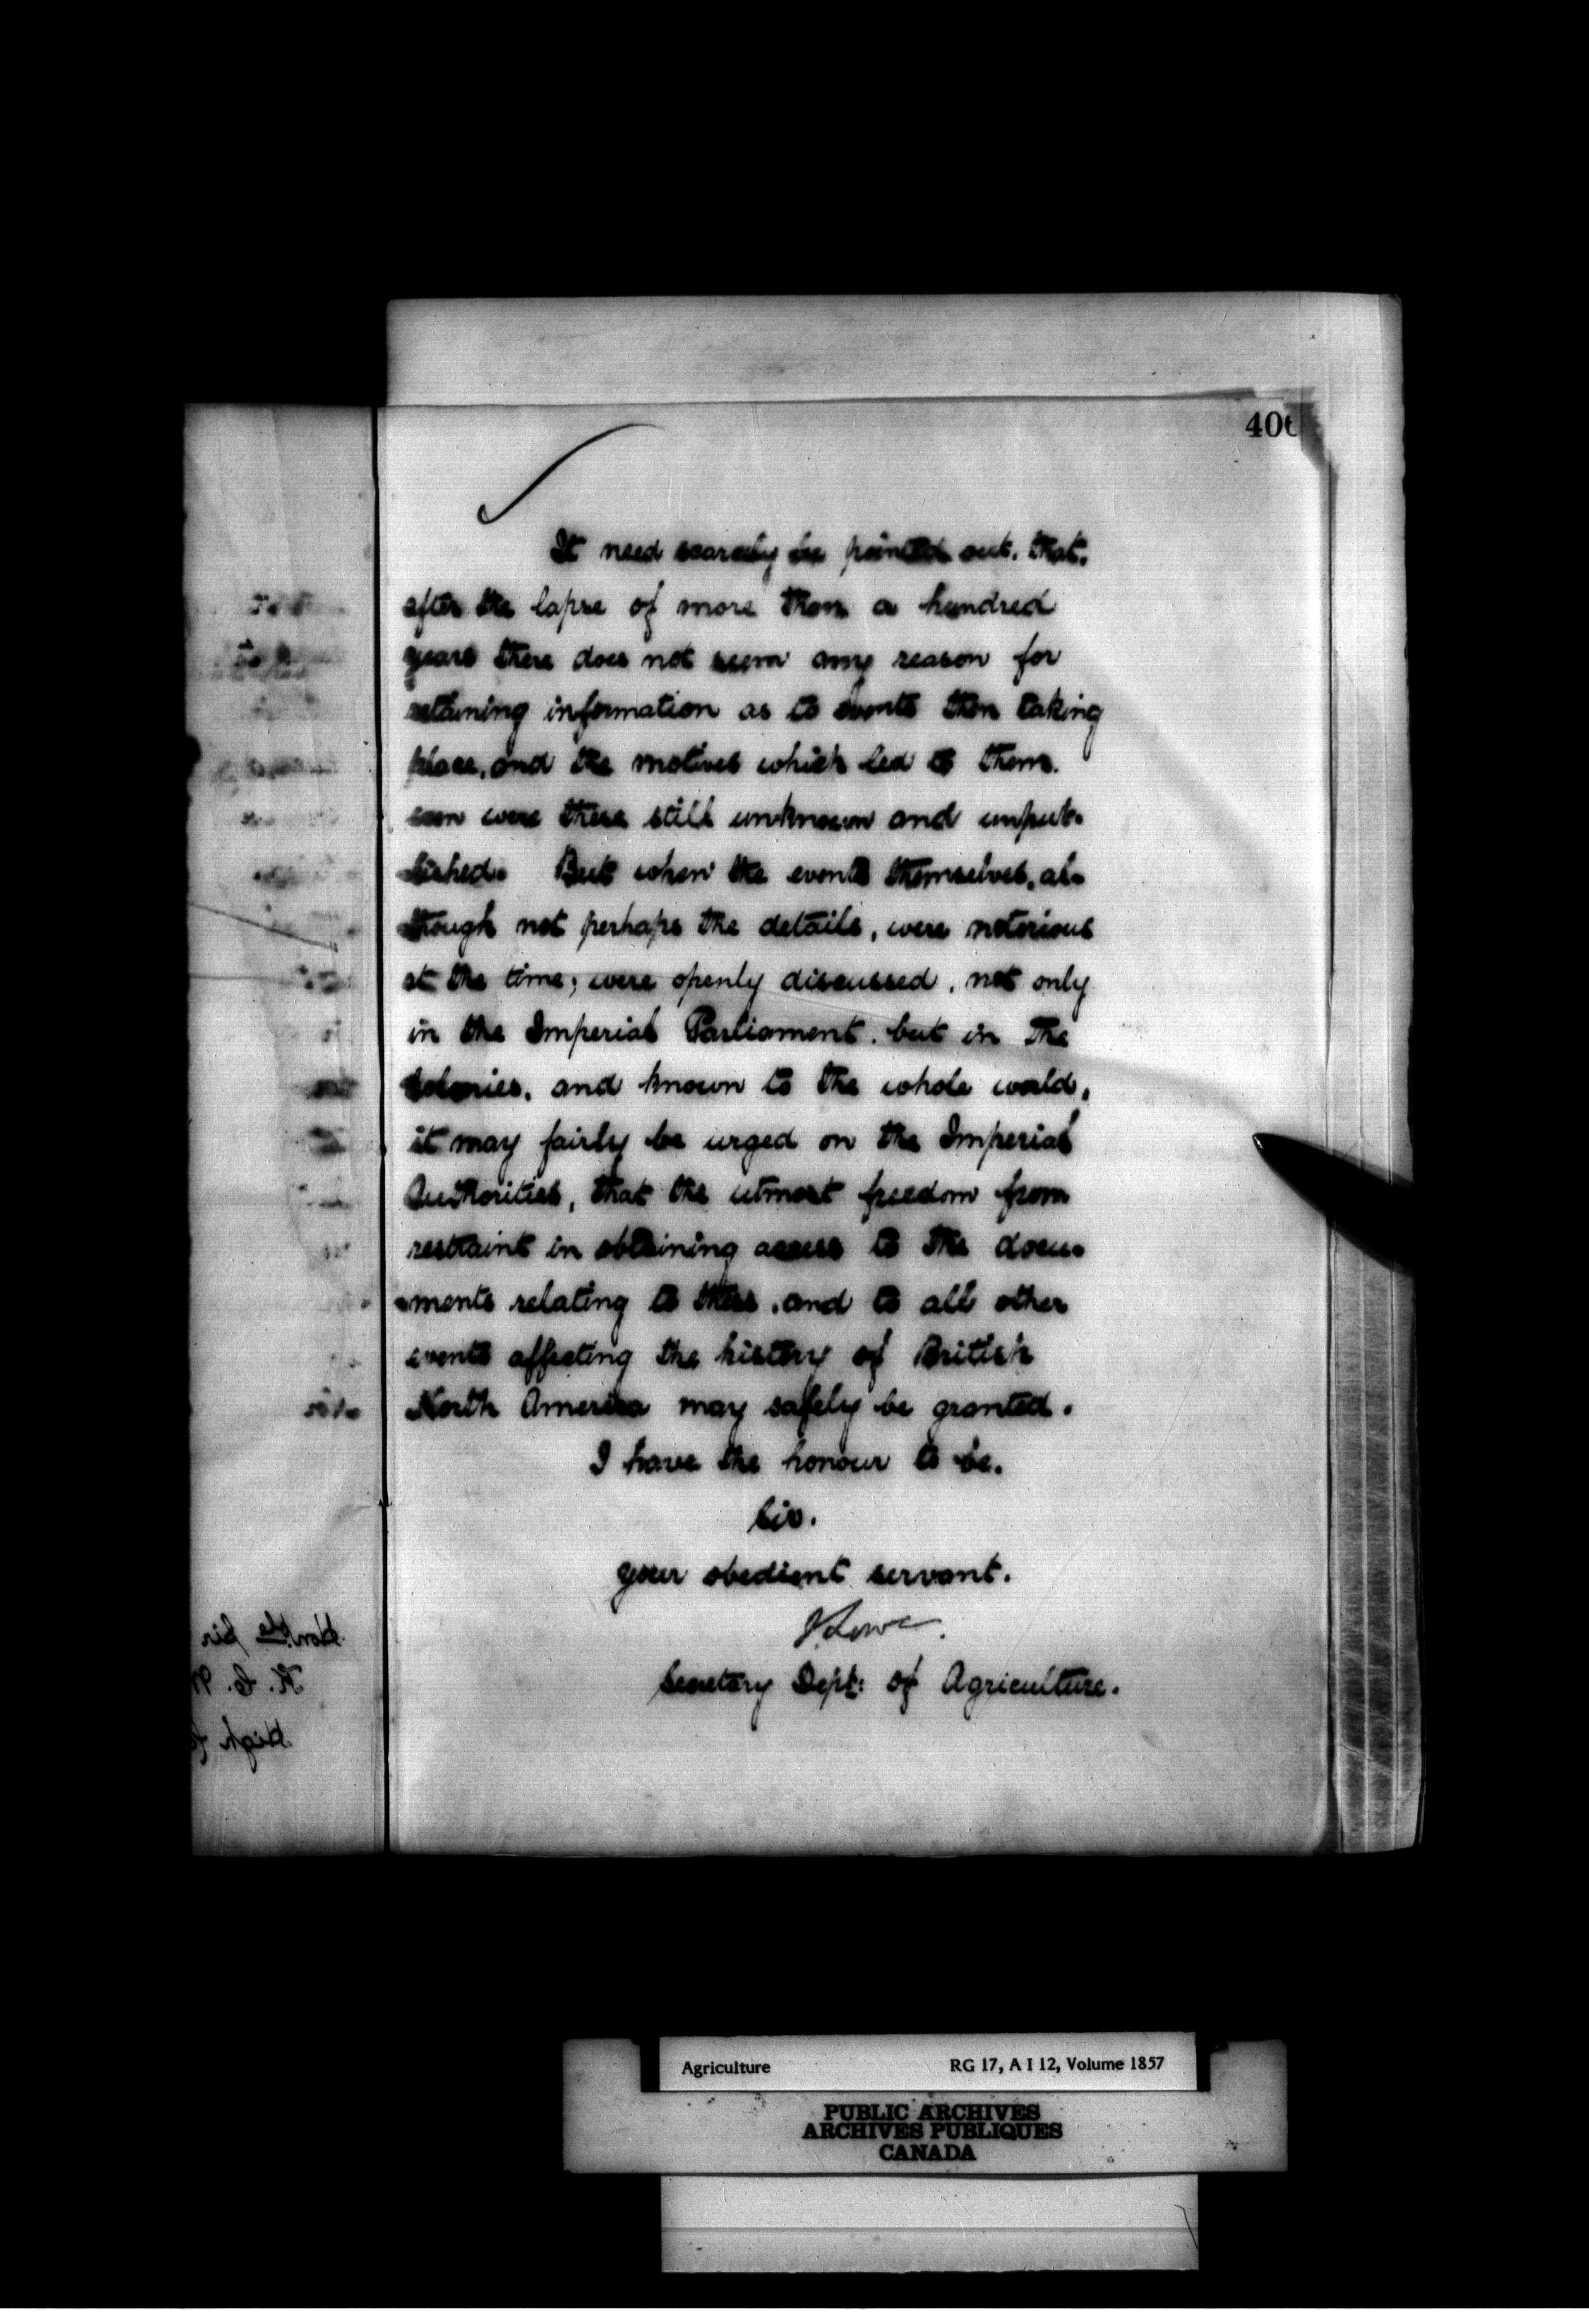 40
It need scarcely be pointed out, that,
after the lapse of more than a hundred
years there does not seem any reason for
retaining information as to events then taking
place, and the motives which led to them,
even were these still unknown and unpub-
lished. But when the events themselves, al-
though not perhaps the details, were notorious
at the time; were openly discussed, not only
in the Imperial Parliament, but in the
Colonies, and known to the whole world,
it may fairly be urged on the Imperial
Authorities, that the utmost freedom from
restraint in obtaining access to the docu-
-ments relating to these, and to all other
events affecting the history of British
North America may safely be granted.
I have the honour to be,
Sir,
Your obedient servant.
J. Lowe.
Secretary Dept: of Agriculture.
Agriculture RG 17, A I 12, Volume 1857
PUBLIC ARCHIVES
ARCHIVES PUBLIQUES
CANADA